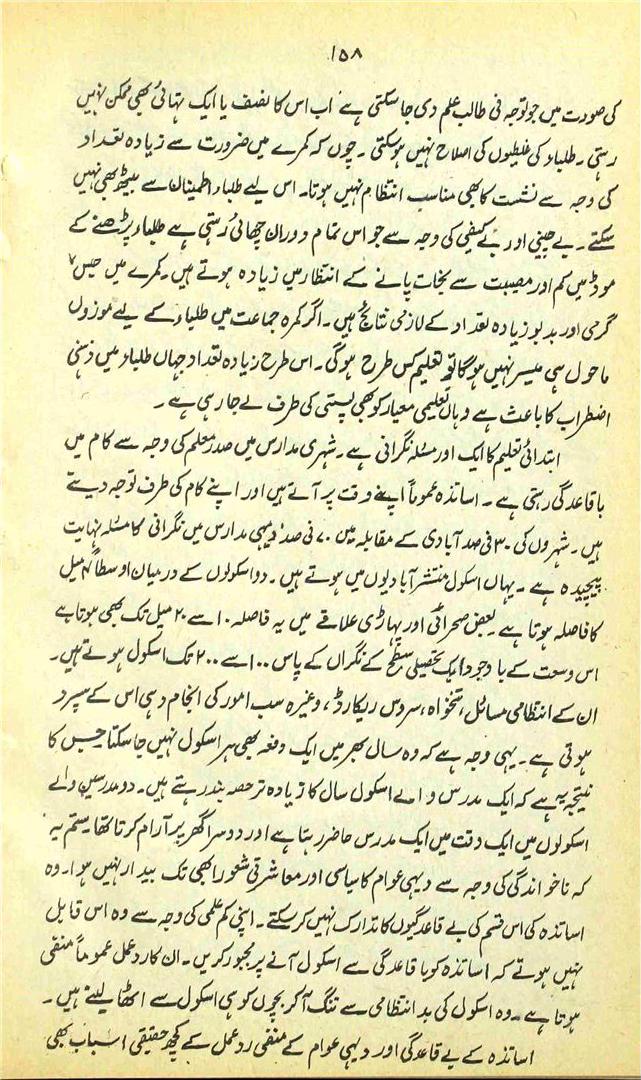 ۱۵۸
کی صورت میں جو توجہ فی طالب علم دی جا سکتی ہے اب اس کا نصف یا ایک تہائی بھی ممکن نہیں
رہتی۔ طلباء کی غلیطوں کی اصلاح نہیں ہو سکتی۔ چوں کہ کمرے میں ضرورت سے زیادہ تعداد
کی وجہ سے نشست کا بھی مناسب انتظام نہیں ہوتا۔ اس لیے طلباء اطمینان سے بیٹھ بھی نہیں
سکتے۔ بے چینی اور بے کیفی کی وجہ سے جو اس تمام دوران چھائی رہتی ہے طلباء پڑھنے کے
موڈ میں کم اور مصیبت سے نجات پانے کے انتظار میں زیادہ ہوتے ہیں۔ کمرے میں حبس،
گرمی اور بدبو زیادہ تعداد کے لازمی نتائج ہیں۔ اگر کمرہ جماعت میں طلباء کے لیے موزوں
ماحول ہی میسر نہیں ہو گا تو تعلیم کس طرح ہو گی۔ اس طرح زیادہ تعداد جہاں طلباء میں ذہنی
اضطراب کا باعث ہے وہاں تعلیمی معیار کو بھی پستی کی طرف لے جا رہی ہے۔
ابتدائی تعلیم کا ایک اور مسئلہ نگرانی ہے۔ شہری مدارس میں صدر معلم کی وجہ سے کام میں
باقاعدگی رہتی ہے۔ اساتذہ عموماً اپنے وقت پر آتے ہیں اور اپنے کام کی طرف توجہ دیتے
ہیں۔ شہروں کی ۳۰ فی صد آبادی کے مقابلہ میں ۷۰ فی صد دیہی مدارس میں نگرانی کا مسئلہ نہایت
پیچیدہ ہے۔ یہاں اسکول منتشر آبادیوں میں ہوتے ہیں۔ دو اسکولوں کے درمیان اوسطاً میل
کا فاصلہ ہوتا ہے۔ بعض صحرائی اور پہاڑی علاقے میں یہ فاصلہ ۱۰ سے ۲۰ میل تک بھی ہوتا ہے
اس وسعت کے باوجود ایک تحصیلی سطح کے نگراں کے پاس ۱۰۰ سے ۲۰۰ تک اسکول ہوتے ہیں۔
ان کے انتظامی مسائل، تنخواہ، سروس ریکارڈ، وغیرہ سب امور کی انجام دہی اس کے سپرد
ہوتی ہے۔ یہی وجہ ہے کہ وہ سال بھر میں ایک دفعہ بھی ہر اسکول نہیں جا سکتا جس کا
نتیجہ یہ ہے کہ ایک مدرس والے اسکول سال کا زیادہ تر حصہ بند رہتے ہیں۔ دو مدرسین والے
اسکولوں میں ایک وقت میں ایک مدرس حاضر رہتا ہے اور دوسرا گھر پر آرام کرتا تھا ستم یہ
کہ ناخواندگی کی وجہ سے دیہی عوام کا سیاسی اور معاشرتی شعور ابھی تک بیدار نہیں ہوا۔ وہ
اساتذہ کی اس قسم کی بے قاعدگیوں کا تدارک نہیں کر سکتے۔ اپنی کم علمی کی وجہ سے وہ اس قابل
نہیں ہوتے کہ اساتذہ کو باقاعدگی سے اسکول آنے پر مجبور کریں۔ ان کا رد عمل عموماً منفی
ہوتا ہے۔ وہ اسکول کی بد انتظامی سے تنگ آ کر بچوں کو ہی اسکول سے اٹھا لیتے ہیں۔
اساتذہ کے بے قاعدگی اور دیہی عوام کے منفی رد عمل کے کچھ حقیقی اسباب بھی